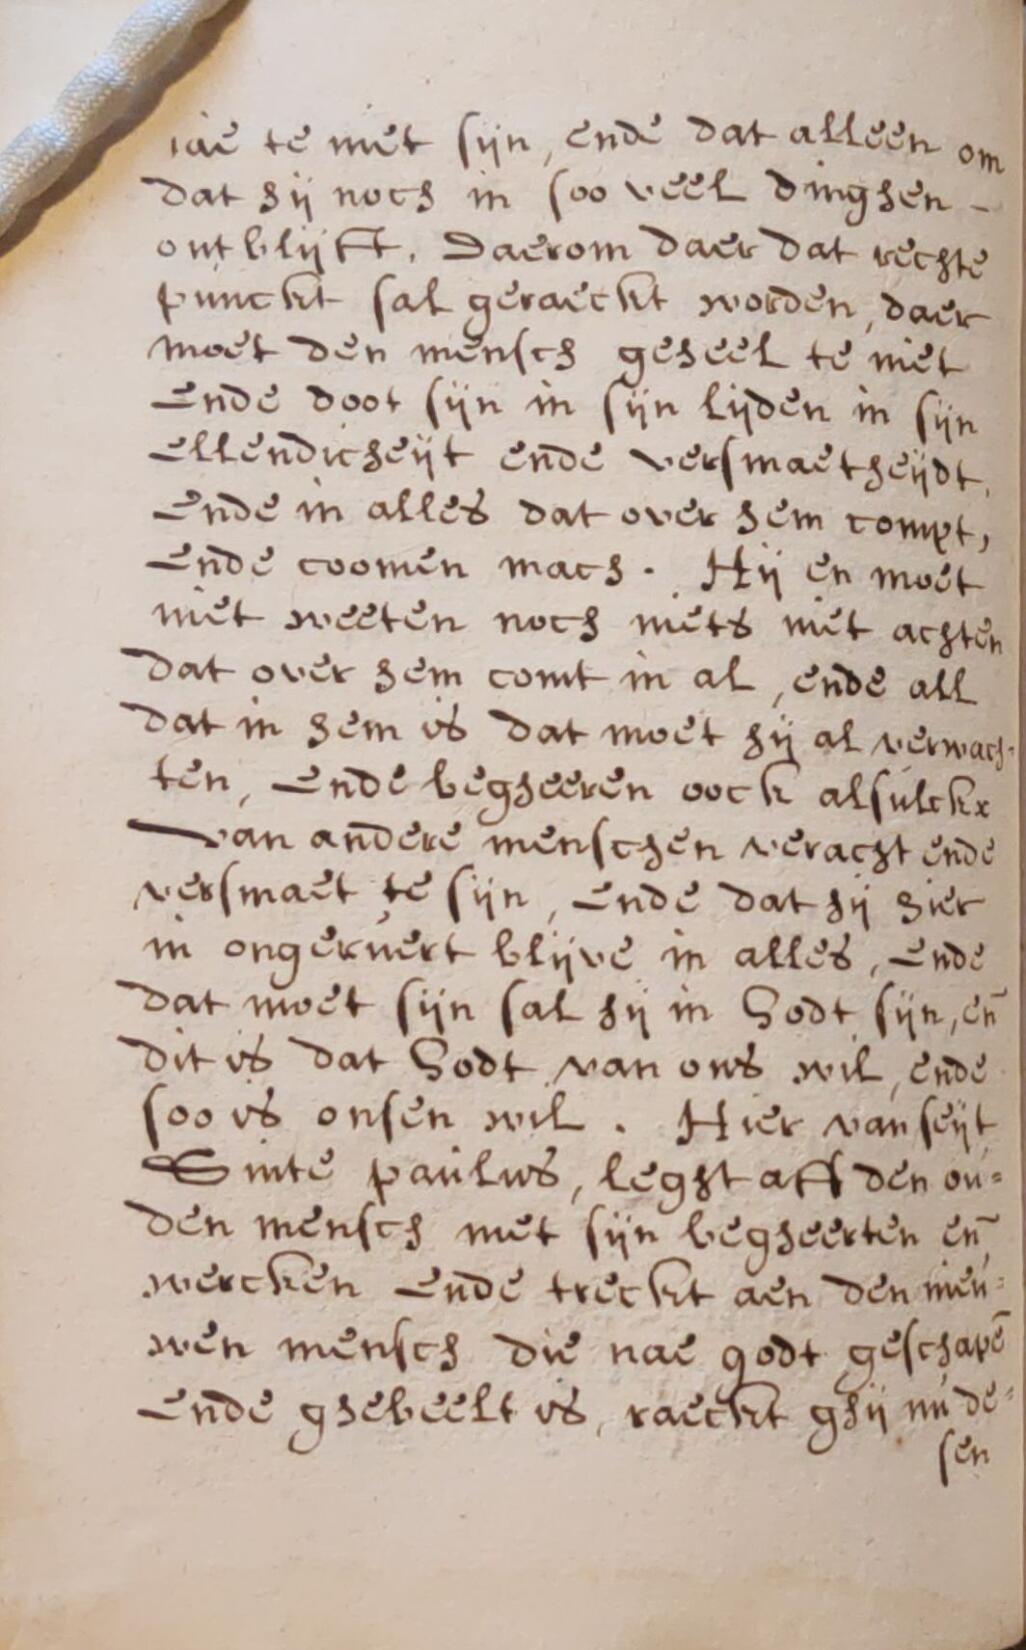 iae te niet sijn, ende dat alleen om
dat hij noch in soo veel dinghen -
ontblijft. Daerom daer dat rechte
punckt sal geraeckt worden, daer
moet den mensch geheel te niet
Ende doot sijn in sijn lijden in sijn
Ellendicheijt ende versmaetheijdt,
Ende in alles dat over hem compt,
Ende coomen mach. Hij en moet
niet weeten noch niets niet achten
dat over hem comt in al, ende all
dat in hem is dat moet hij al verwach-
ten, Ende begheeren oock alsulckx
van andere menschen veracht ende
versmaet te sijn, Ende dat hij hier
in ongeruert blijve in alles, Ende
dat moet sijn sal hij in Godt sijn, en̄
dit is dat Godt van ons wil, ende
soo is onsen wil. Hier van seijt
Sinte paulus, leght aff den ou=
den mensch met sijn begheerten en̄
wercken Ende treckt aen den nieu=
wen mensch die nae godt geschapē
Ende ghebeelt is, raeckt ghij nu de=
sen